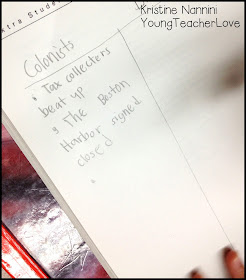 Kristine Nannini
YoungTeacherLove
xtra Stude
Colonists
• Tax collecters
beat up
• The Boston
Harbor signed
closed
•